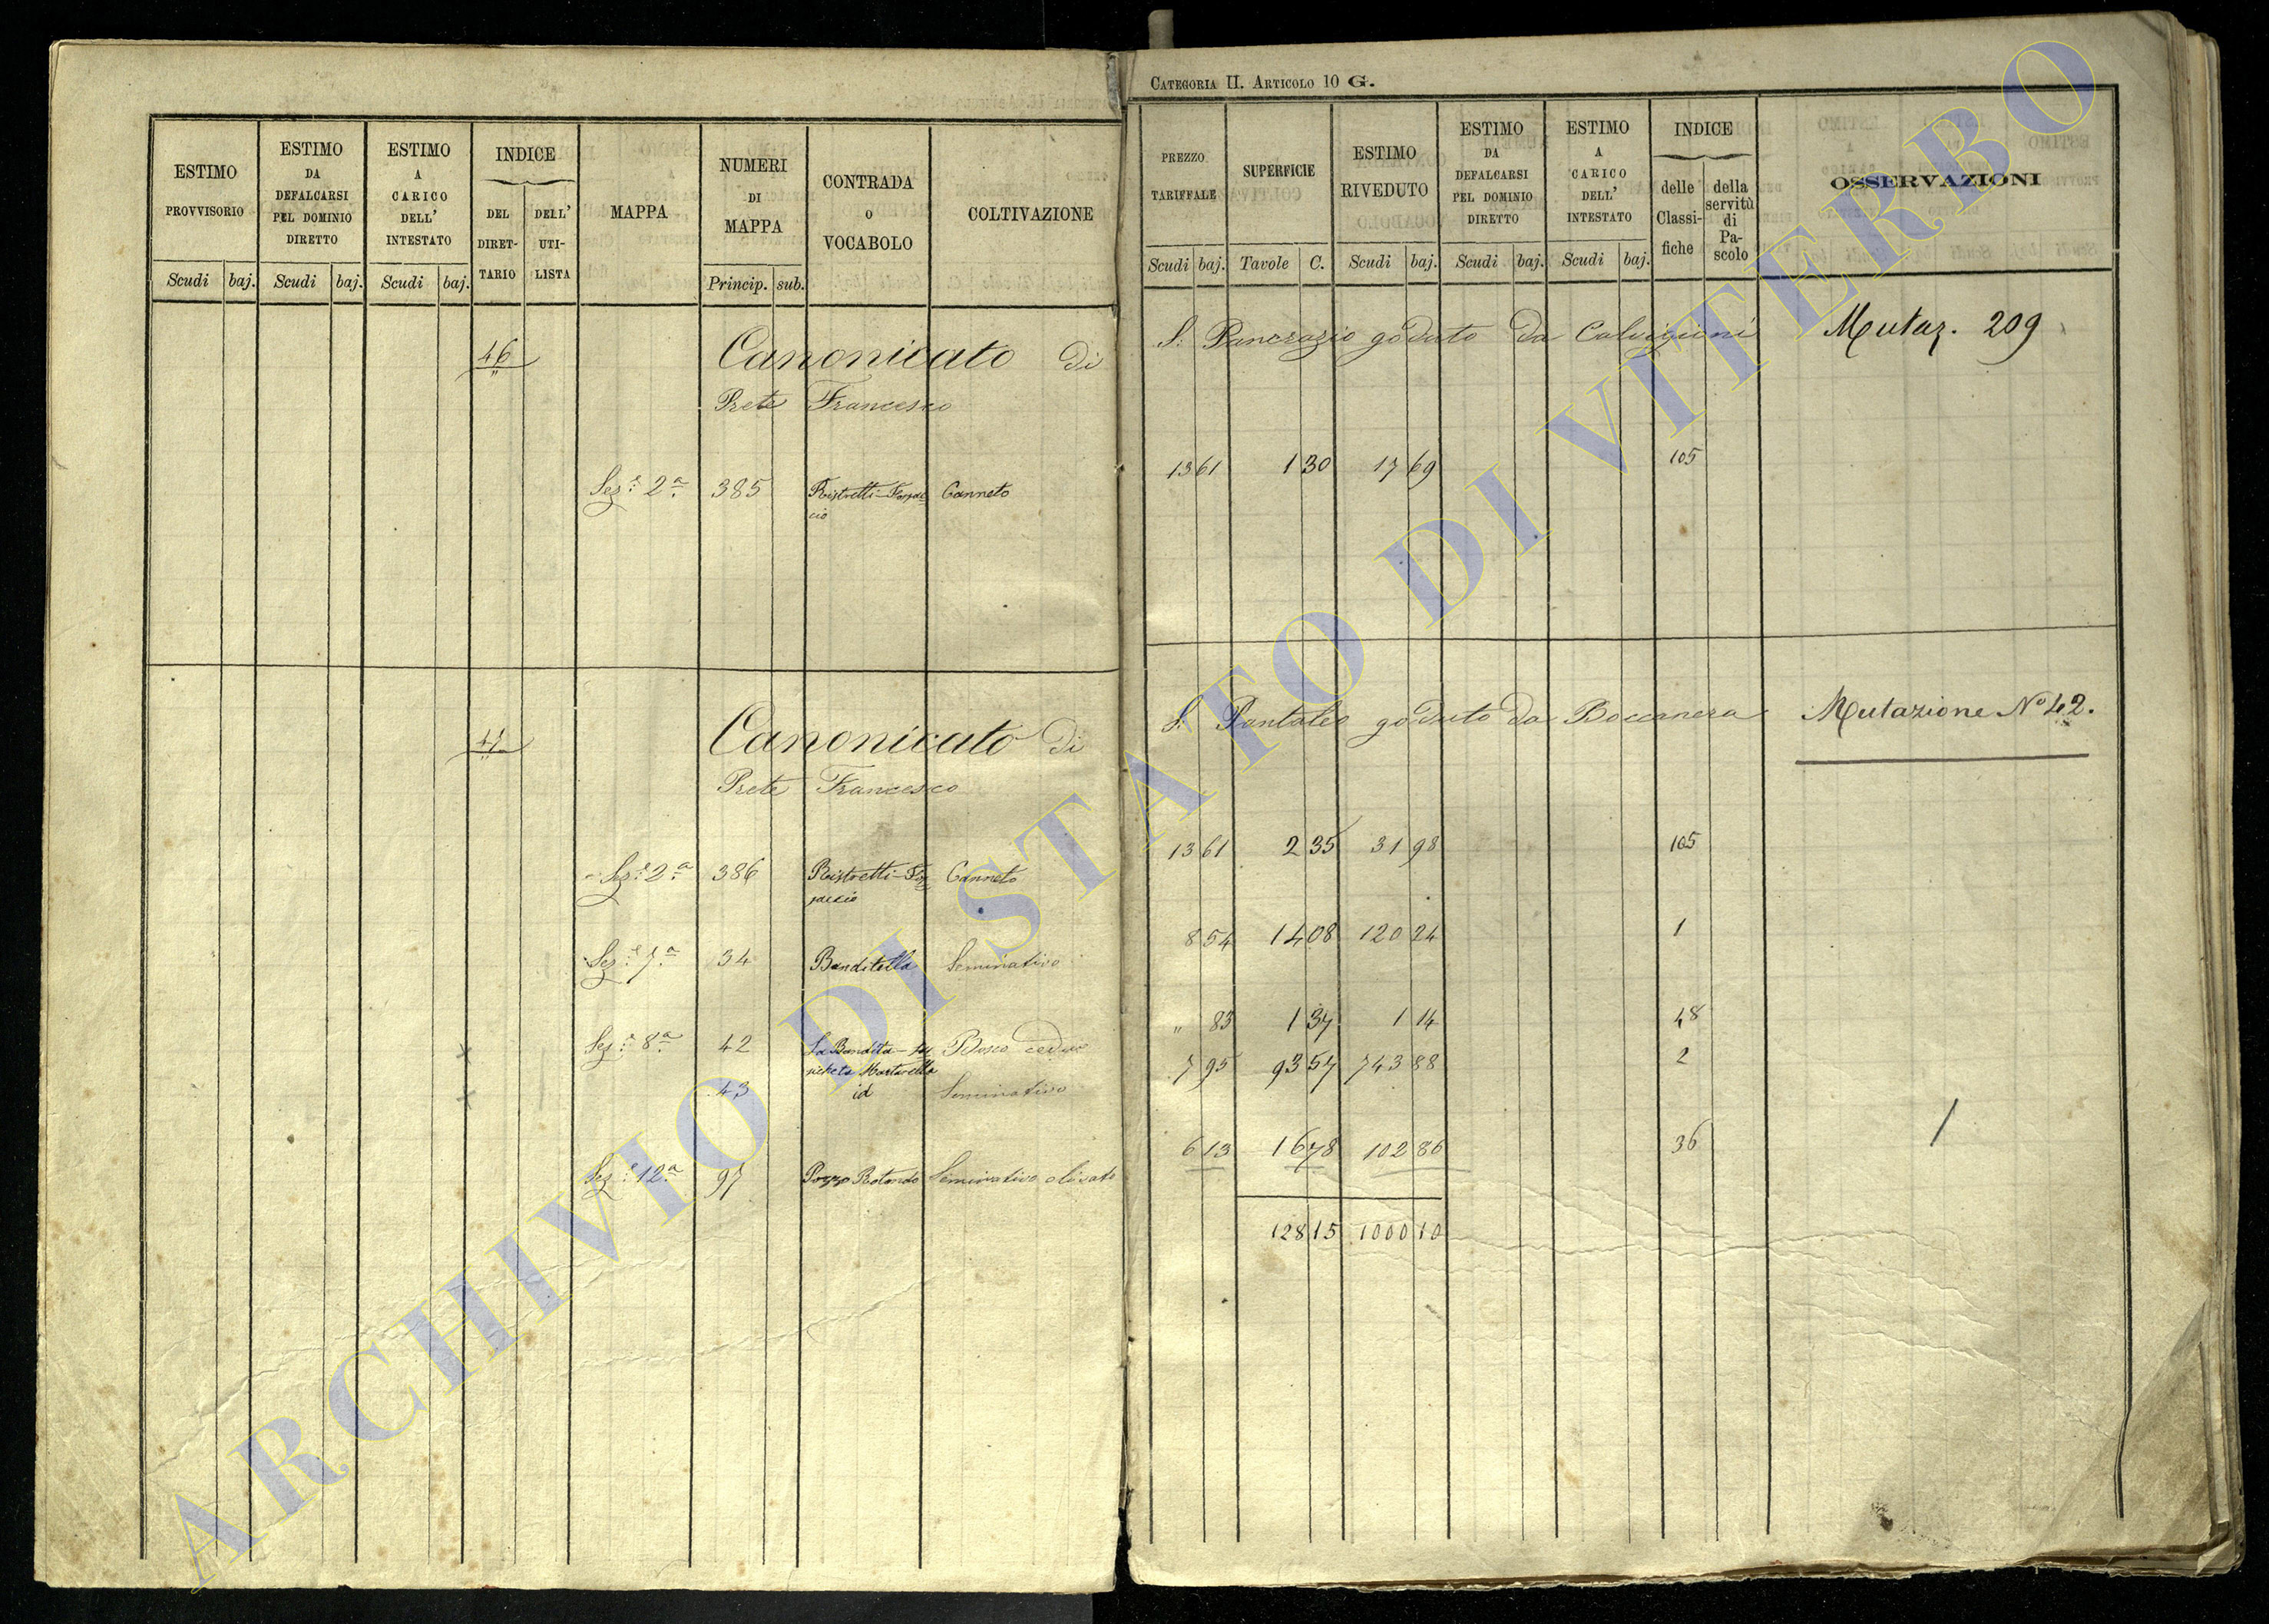 CATEGORIA II. ARTICOLO 10 G.
ESTIMO PROVVISORIO Scudi baj.
ESTIMO DA DEFALCARSI PEL DOMINIO DIRETTO Scudi baj.
ESTIMO A CARICO DELL' INTESTATO Scudi baj.
INDICE DEL DIRETTARIO DELL' UTILISTA
MAPPA
NUMERI DI MAPPA Princip. sub.
CONTRADA O VOCABOLO
COLTIVAZIONE
PREZZO TARIFFALE Scudi baj.
SUPERFICIE Tavole C.
ESTIMO RIVEDUTO Scudi baj.
ESTIMO DA DEFALCARSI PEL DOMINIO DIRETTO Scudi baj.
ESTIMO A CARICO DELL' INTESTATO Scudi baj.
INDICE delle Classifiche della servitù di Pascolo
OSSERVAZIONI
46 Canonicato di S. Pancrazio goduto da Calvigioni Mutaz. 209
Prete Francesco
Sez.e 2a 385 Ristretti Canneto 13 61 1 30 17 69 105
Canonicato di S. Pantaleo goduto da Boccanera Mutazione No 42.
Prete Francesco
Sez.e 2a 386 Ristretti Canneto 13 61 2 35 31 98 105
Sez.e 7a 34 Banditella Seminativo 8 54 14 08 120 24 1
Sez.e 8a 42 La Bandita Bosco ceduo " 83 1 37 1 14 48
Mortarella
43 id Seminativo 7 95 93 57 743 88 2
Sez.e 12a 97 Pozzo Rotondo Seminativo olivato 6 13 16 78 102 86 36
128 15 1000 10
ARCHIVIO DI STATO DI VITERBO